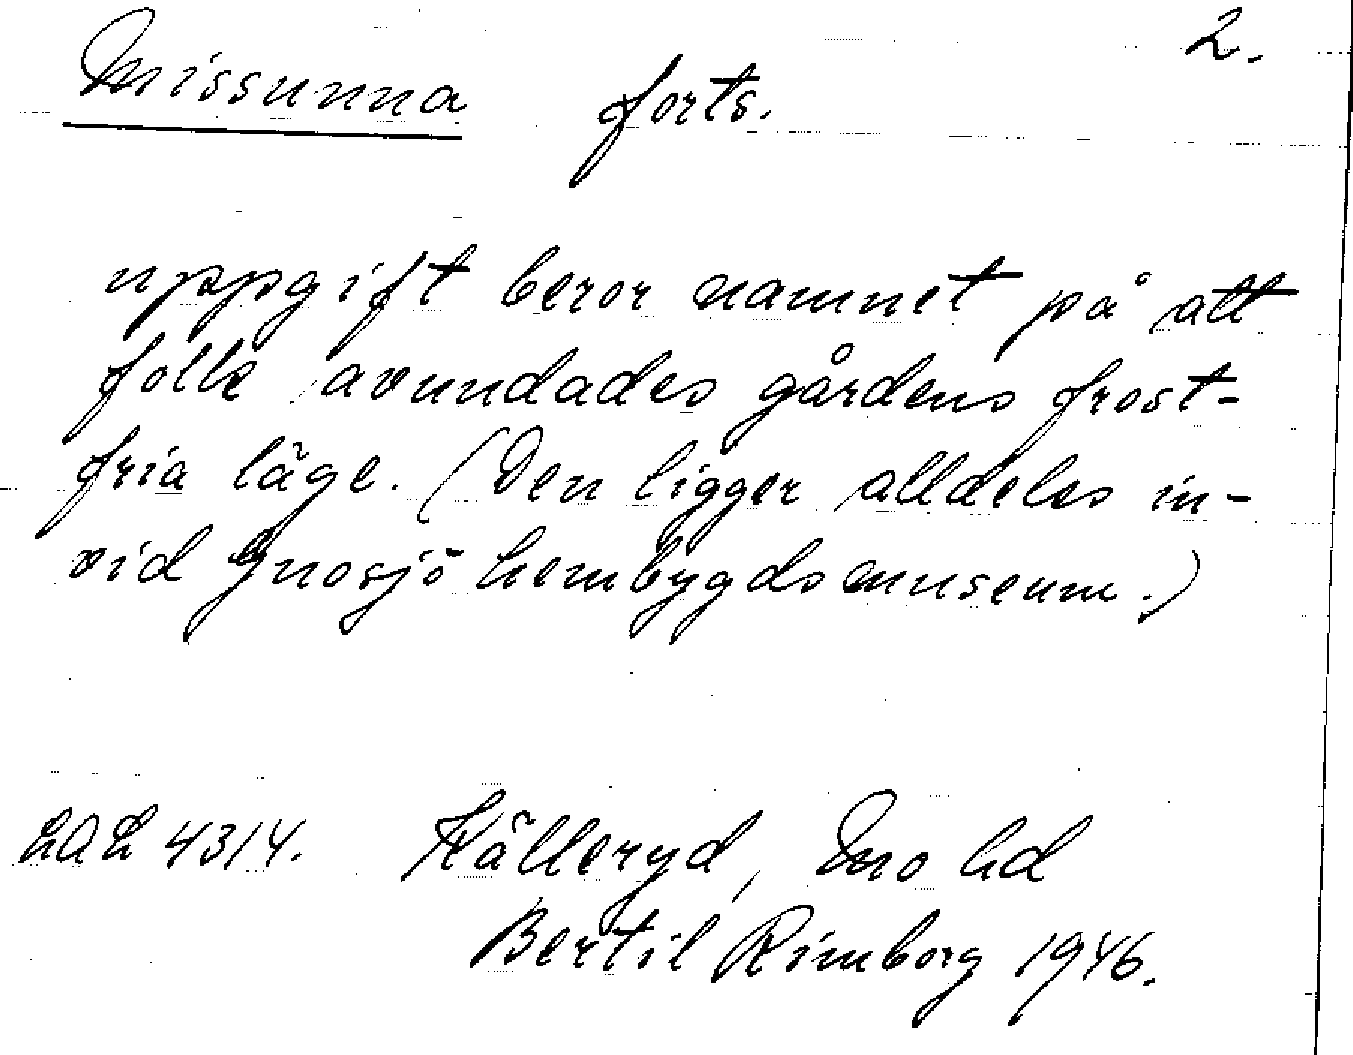 Missunna forts. 2.
uppgift beror namnet på att
folk avundades gårdens frost-
fria läge. (Den ligger alldeles in-
vid Gnosjö hembygdsmuseum.)
LAL 4314. Källeryd, Mo hd
Bertil Rimborg 1946.